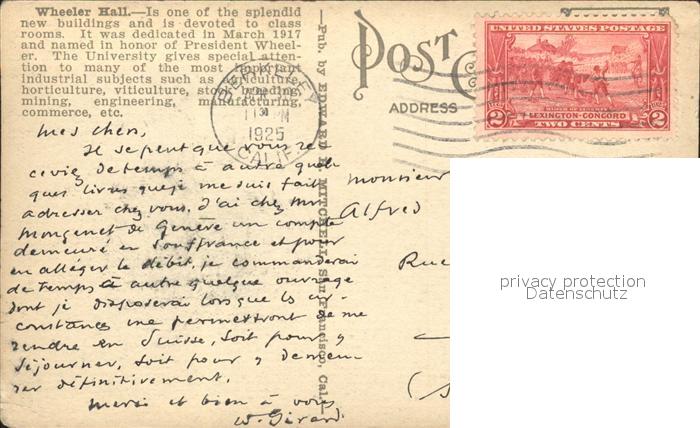 Wheeler Hall.—Is one of the splendid
new buildings and is devoted to class
rooms. It was dedicated in March 1917
and named in honor of President Wheel-
er. The University gives special atten-
tion to many of the most important
industrial subjects such as agriculture,
horticulture, viticulture, stock breeding,
mining, engineering, manufacturing,
commerce, etc.
Mes chers,
Il se peut que vous re-
ceviez de temps à autre quel-
ques livres que je me suis fait
adresser chez vous. J'ai chez Mr
Mongenet de Genève un compte
demeuré en souffrance et pour
en alléger le débit, je commanderai
de temps à autre quelque ouvrage
dont je disposerai lorsque les cir-
constances me permettront de me
rendre en Suisse, soit pour y
séjourner, soit pour y demeu-
rer définitivement.
Merci et bien à vous
W. Girard
—Pub. by EDWARD H. MITCHELL, San Francisco, Cal.—
POST C
ADDRESS
BERKELEY
APR
1925
CALIF.
UNITED STATES POSTAGE
LEXINGTON-CONCORD
2 TWO CENTS 2
Monsieur
Alfred
Rue
(S
privacy protection
Datenschutz